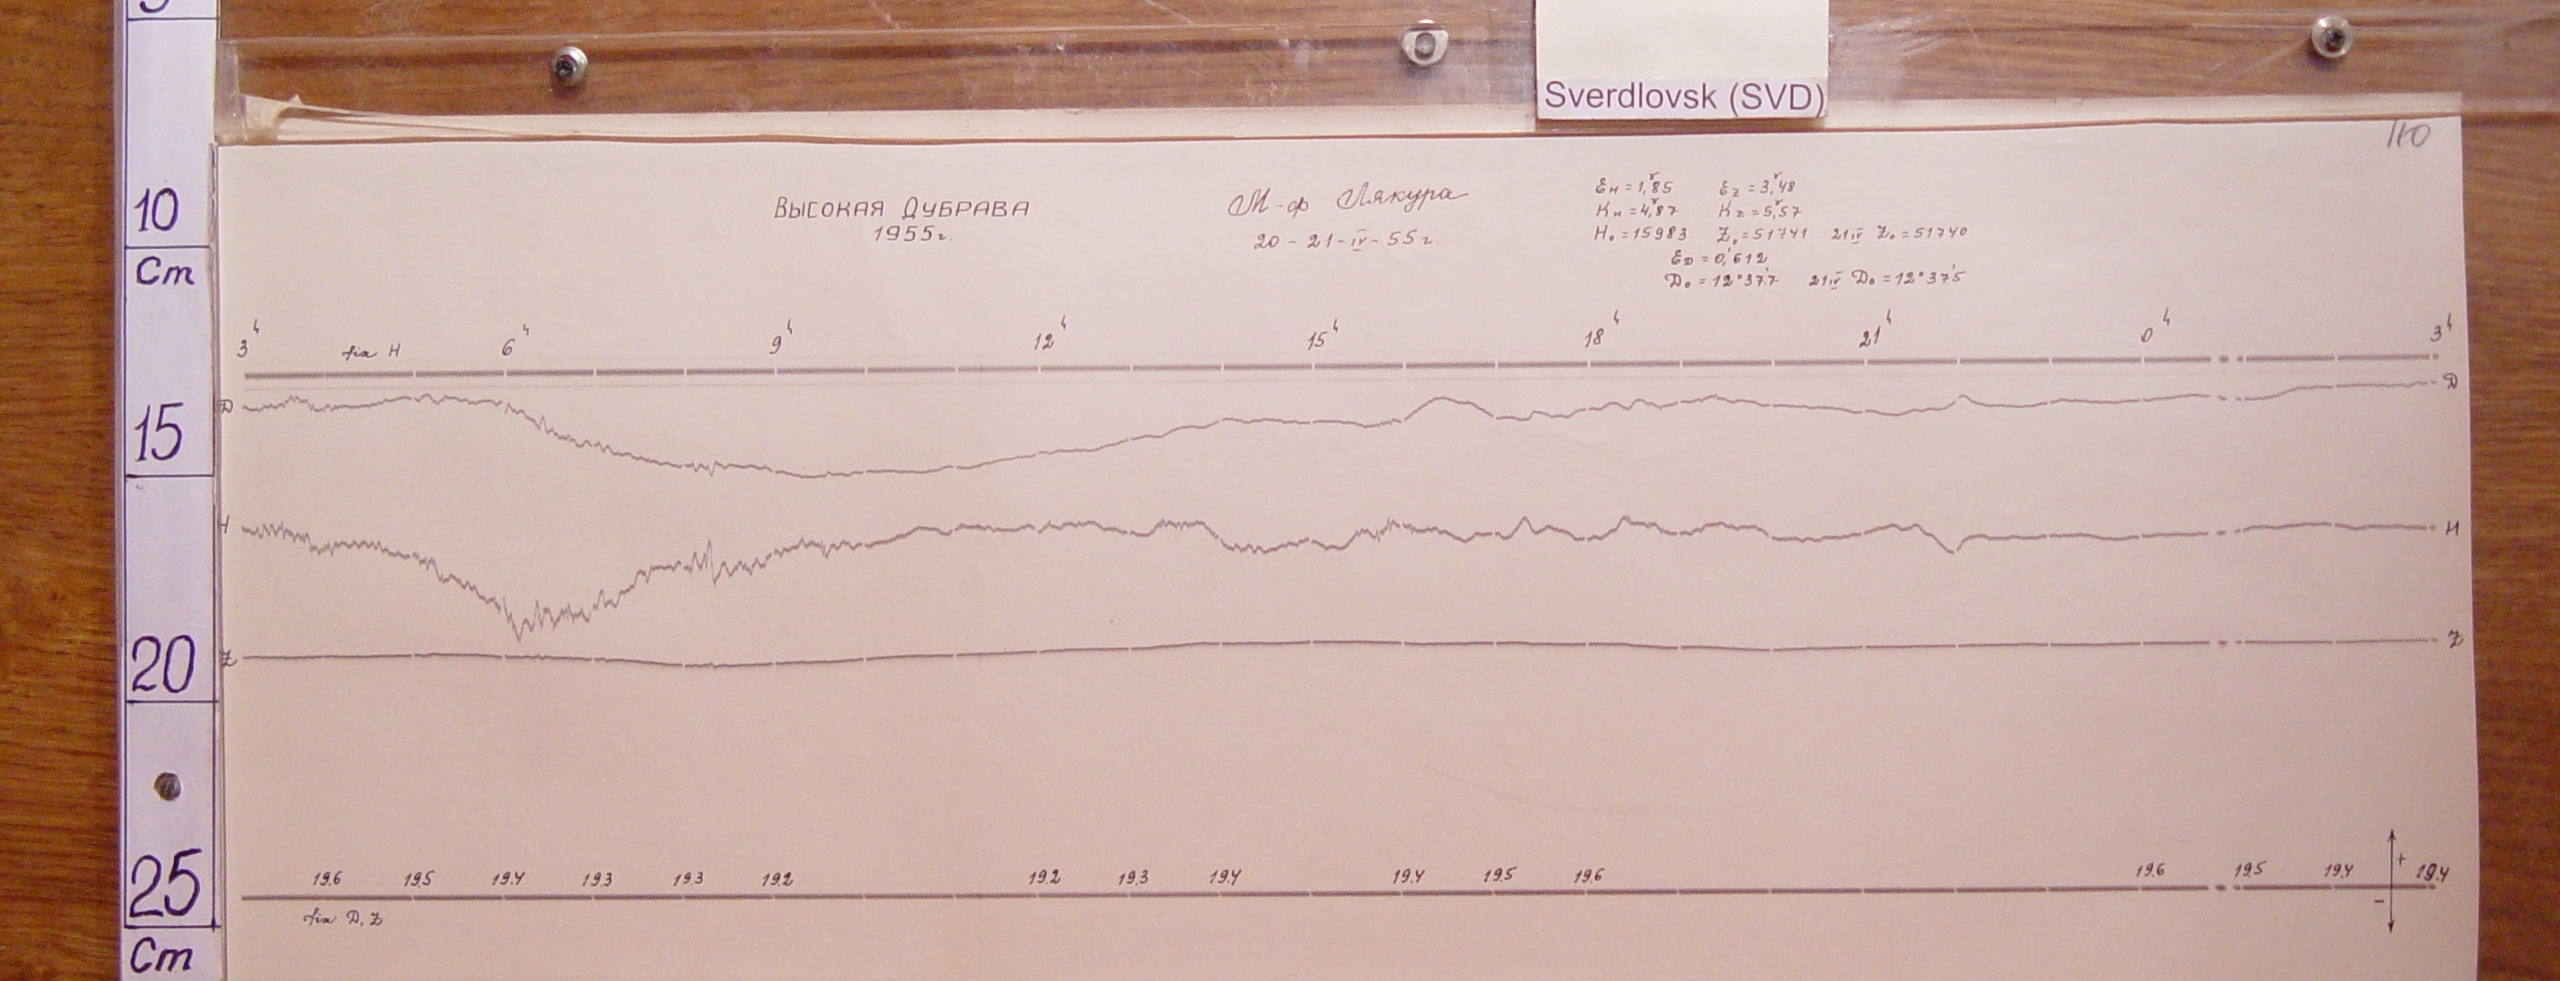 Sverdlovsk (SVD)
110
10
Cm
15
20
25
Cm
Высокая Дубрава
1955г.
М-ф Лякура
20-21-IV-55г.
Eн = 1,85 Ez = 3,48
Kн = 4,87 Kz = 5,57
H₀ = 15983 Z₀ = 51741 21IV Z₀ = 51740
ED = 0,'612
D₀ = 12°37,'7 21IV D₀ = 12°37,'5
3ч fix H 6ч 9ч 12ч 15ч 18ч 21ч 0ч 3ч
D D
H H
Z Z
19.6 19.5 19.4 19.3 19.3 19.2 19.2 19.3 19.4 19.4 19.5 19.6 19.6 19.5 19.4 19.4
+
-
fix D, Z